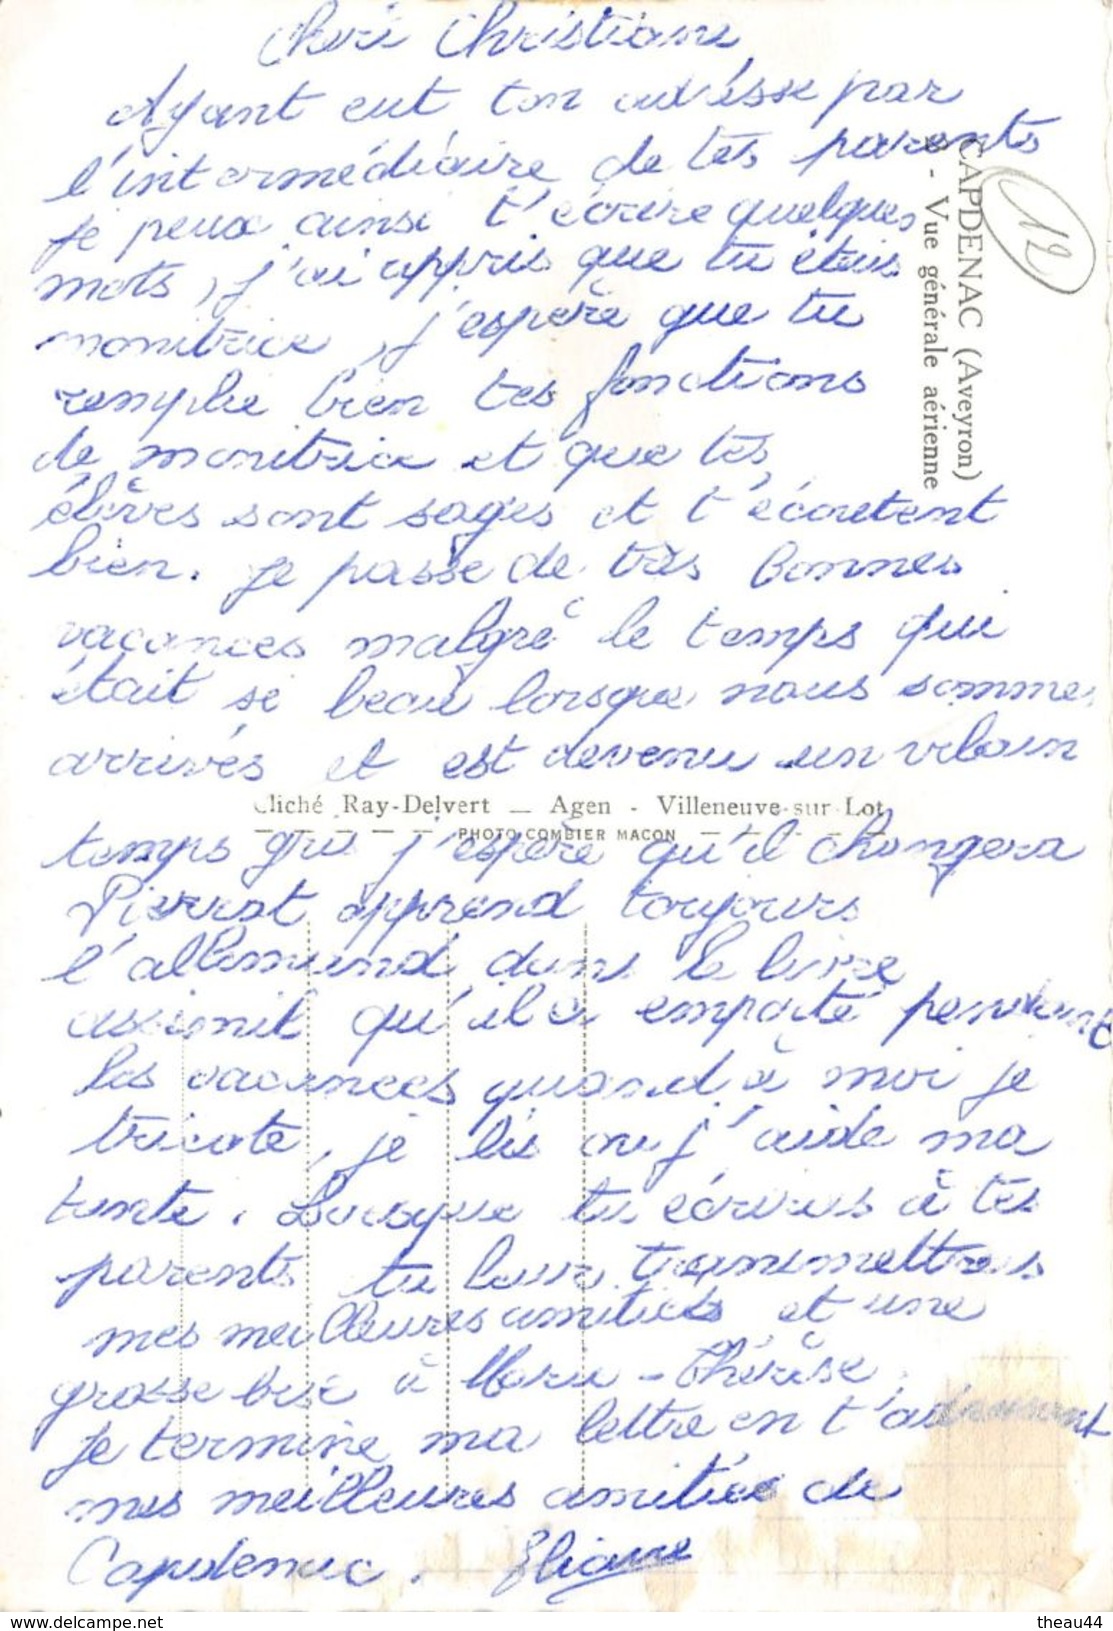 Chère Christiane
Ayant eut ton adrésse par
l'intermédiaire de tes parents
je peux ainsi t'écrire quelques
mots, j'ai appris que tu étais
monitrice, j'espère que tu
remplie bien tes fonctions
de monitrice et que tes
élèves sont sages et t'écoutent
bien. Je passe de très bonnes
vacances malgré le temps qui
était si beau lorsque nous sommes
arrivés et est devenu un vilain
temps gris j'espère qu'il changera
Pierrot apprend toujours
l'allemand dans le livre
assimil qu'il a emporté pendant
les vacances quand à moi je
tricote, je lis ou j'aide ma
tante. Lorsque tu écriras à tes
parents tu leur transmettras
mes meilleures amitiés et une
grosse bise à Marie-Thérèse.
Je termine ma lettre en t'adressant
mes meilleures amitiés de
Capdenac. Eliane
CAPDENAC (Aveyron)
- Vue générale aérienne
12
Cliché Ray-Delvert — Agen - Villeneuve-sur-Lot
PHOTO COMBIER MACON
www.delcampe.net
theau44